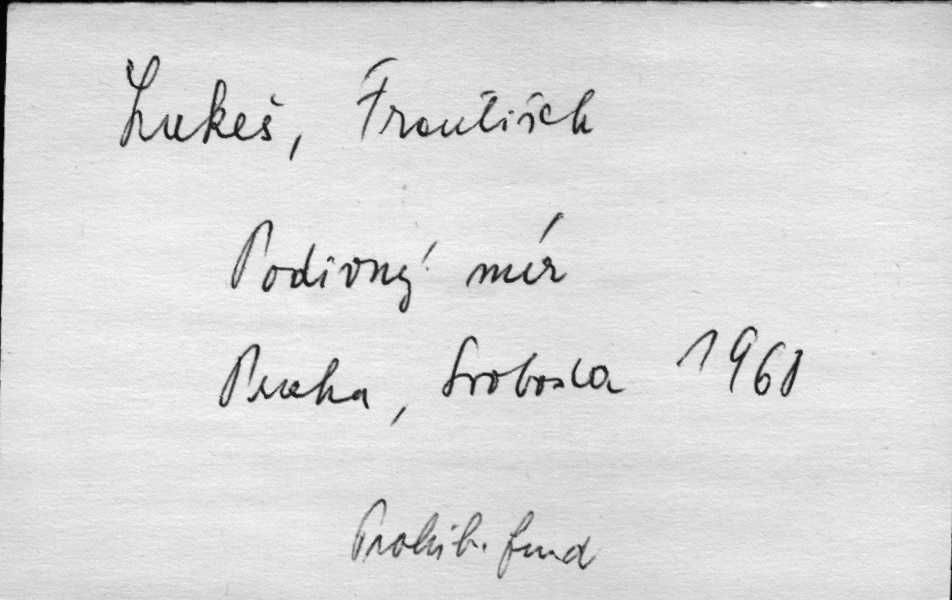 Lukeš, František
Podivný mír
Praha, Svoboda 1968
Prohib. fund